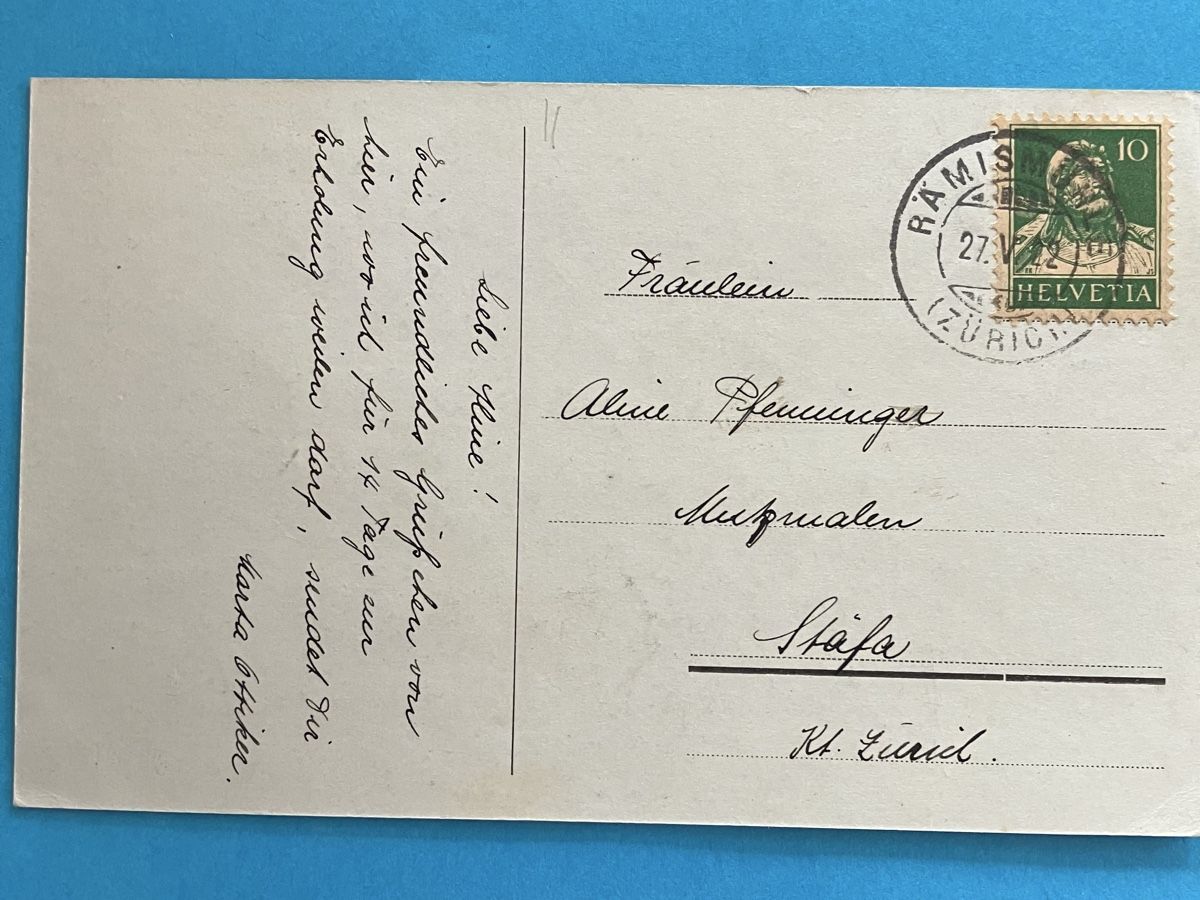 Liebe Aline!
Ein freundliches Grüßchen von
hier, wo ich für 14 Tage zur
Erholung weilen darf, sendet Dir
Marta Ottiker.
Fräulein
Aline Pfenninger
Mutzmalen
Stäfa
Kt. Zürich.
10
HELVETIA
RÄMISMÜHLE
27.V
(ZÜRICH)